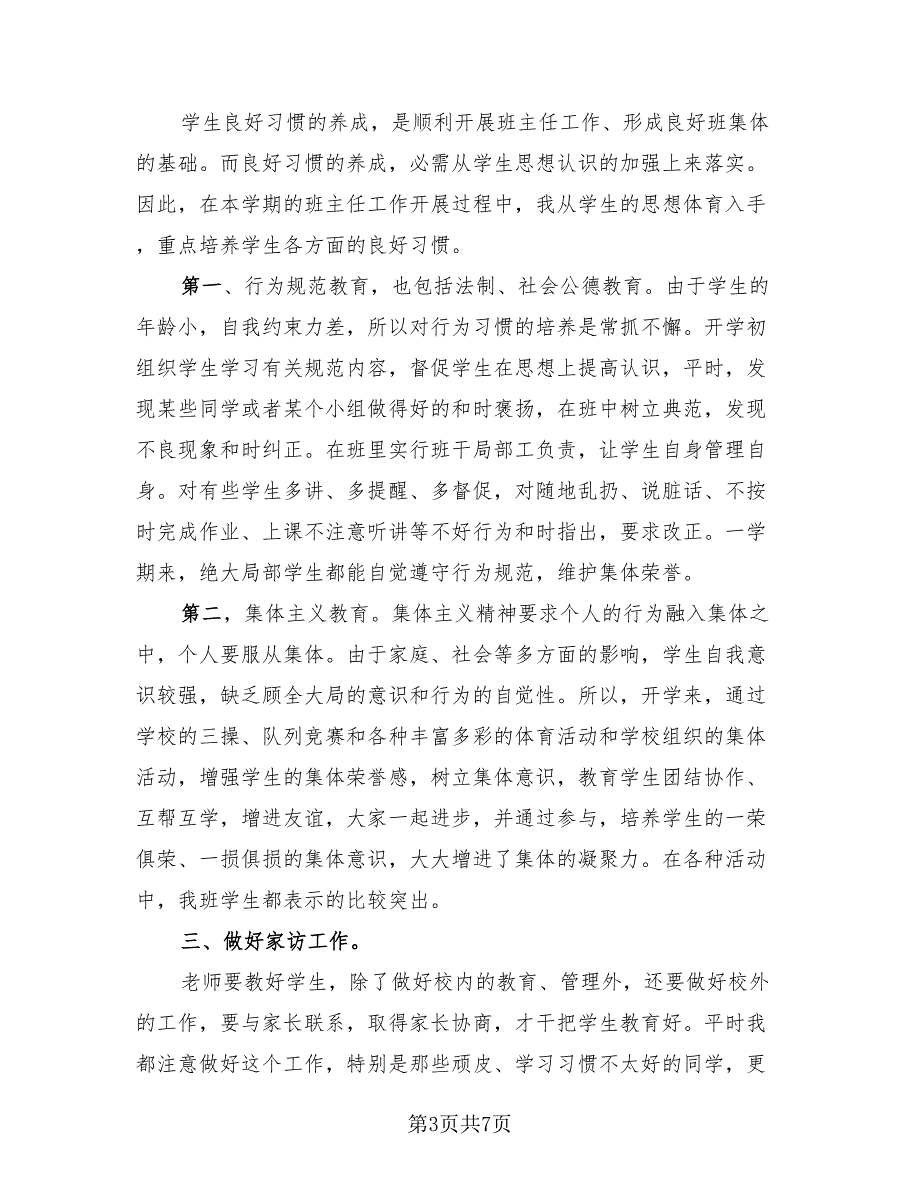 学生良好习惯的养成，是顺利开展班主任工作、形成良好班集体
的基础。而良好习惯的养成，必需从学生思想认识的加强上来落实。
因此，在本学期的班主任工作开展过程中，我从学生的思想体育入手
，重点培养学生各方面的良好习惯。
第一、行为规范教育，也包括法制、社会公德教育。由于学生的
年龄小，自我约束力差，所以对行为习惯的培养是常抓不懈。开学初
组织学生学习有关规范内容，督促学生在思想上提高认识，平时，发
现某些同学或者某个小组做得好的和时褒扬，在班中树立典范，发现
不良现象和时纠正。在班里实行班干局部工负责，让学生自身管理自
身。对有些学生多讲、多提醒、多督促，对随地乱扔、说脏话、不按
时完成作业、上课不注意听讲等不好行为和时指出，要求改正。一学
期来，绝大局部学生都能自觉遵守行为规范，维护集体荣誉。
第二，集体主义教育。集体主义精神要求个人的行为融入集体之
中，个人要服从集体。由于家庭、社会等多方面的影响，学生自我意
识较强，缺乏顾全大局的意识和行为的自觉性。所以，开学来，通过
学校的三操、队列竞赛和各种丰富多彩的体育活动和学校组织的集体
活动，增强学生的集体荣誉感，树立集体意识，教育学生团结协作、
互帮互学，增进友谊，大家一起进步，并通过参与，培养学生的一荣
俱荣、一损俱损的集体意识，大大增进了集体的凝聚力。在各种活动
中，我班学生都表示的比较突出。
三、做好家访工作。
老师要教好学生，除了做好校内的教育、管理外，还要做好校外
的工作，要与家长联系，取得家长协商，才干把学生教育好。平时我
都注意做好这个工作，特别是那些顽皮、学习习惯不太好的同学，更
第3页共7页